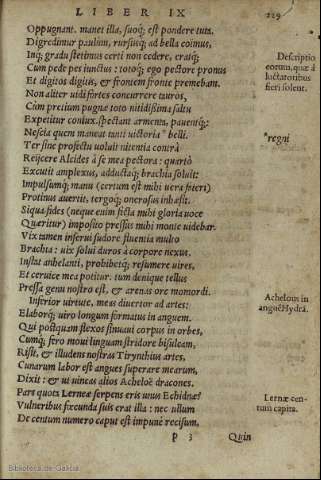 LIBER IX
229
Oppugnant. manet illa, suoq́; est pondere tuta.
Digredimur paulùm, rursusq́; ad bella coimus,
Inq́; gradu stetimus certi non cedere, eratq́;
Cum pede pes iunctus: totoq́; ego pectore pronus
Et digitos digitis, & frontem fronte premebam.
Non aliter uidi fortes concurrere tauros,
Cùm pretium pugnæ toto nitidissima saltu
Expetitur coniux. spectant armenta, pauentq́;
Nescia quem maneat tanti uictoria* belli.
Ter sine profectu uoluit nitentia contrà
Reijcere Alcides à se mea pectora: quartò
Excutit amplexus, adductaq́; brachia soluit:
Impulsumq́; manu (certum est mihi uera fateri)
Protinus auertit, tergoq́; onerosus inhæsit.
Siqua fides (neque enim ficta mihi gloria uoce
Quæritur) imposito pressus mihi monte uidebar.
Vix tamen inserui sudore fluentia multo
Brachia: uix solui duros à corpore nexus.
Instat anhelanti, prohibetq́; resumere uires,
Et ceruice mea potitur. tum denique tellus
Pressa genu nostro est, & arenas ore momordi.
Inferior uirtute, meas diuertor ad artes:
Elaborq́; uiro longum formatus in anguem.
Qui postquam flexos sinuaui corpus in orbes,
Cumq́; fero moui linguam stridore bisulcam,
Risit, & illudens nostras Tirynthius artes,
Cunarum labor est angues superare mearum,
Dixit: & ut uincas alios Acheloë dracones.
Pars quota Lerneæ serpens eris unus Echidnæ?
Vulneribus fœcunda suis erat illa: nec ullum
De centum numero caput est impunè recisum,
P 3
Quin
Descriptio
eorum, quæ à
luctatoribus
fieri solent.
*regni
Achelous in
anguē Hydrā.
Lernæ cen-
tum capita.
Biblioteca de Galicia